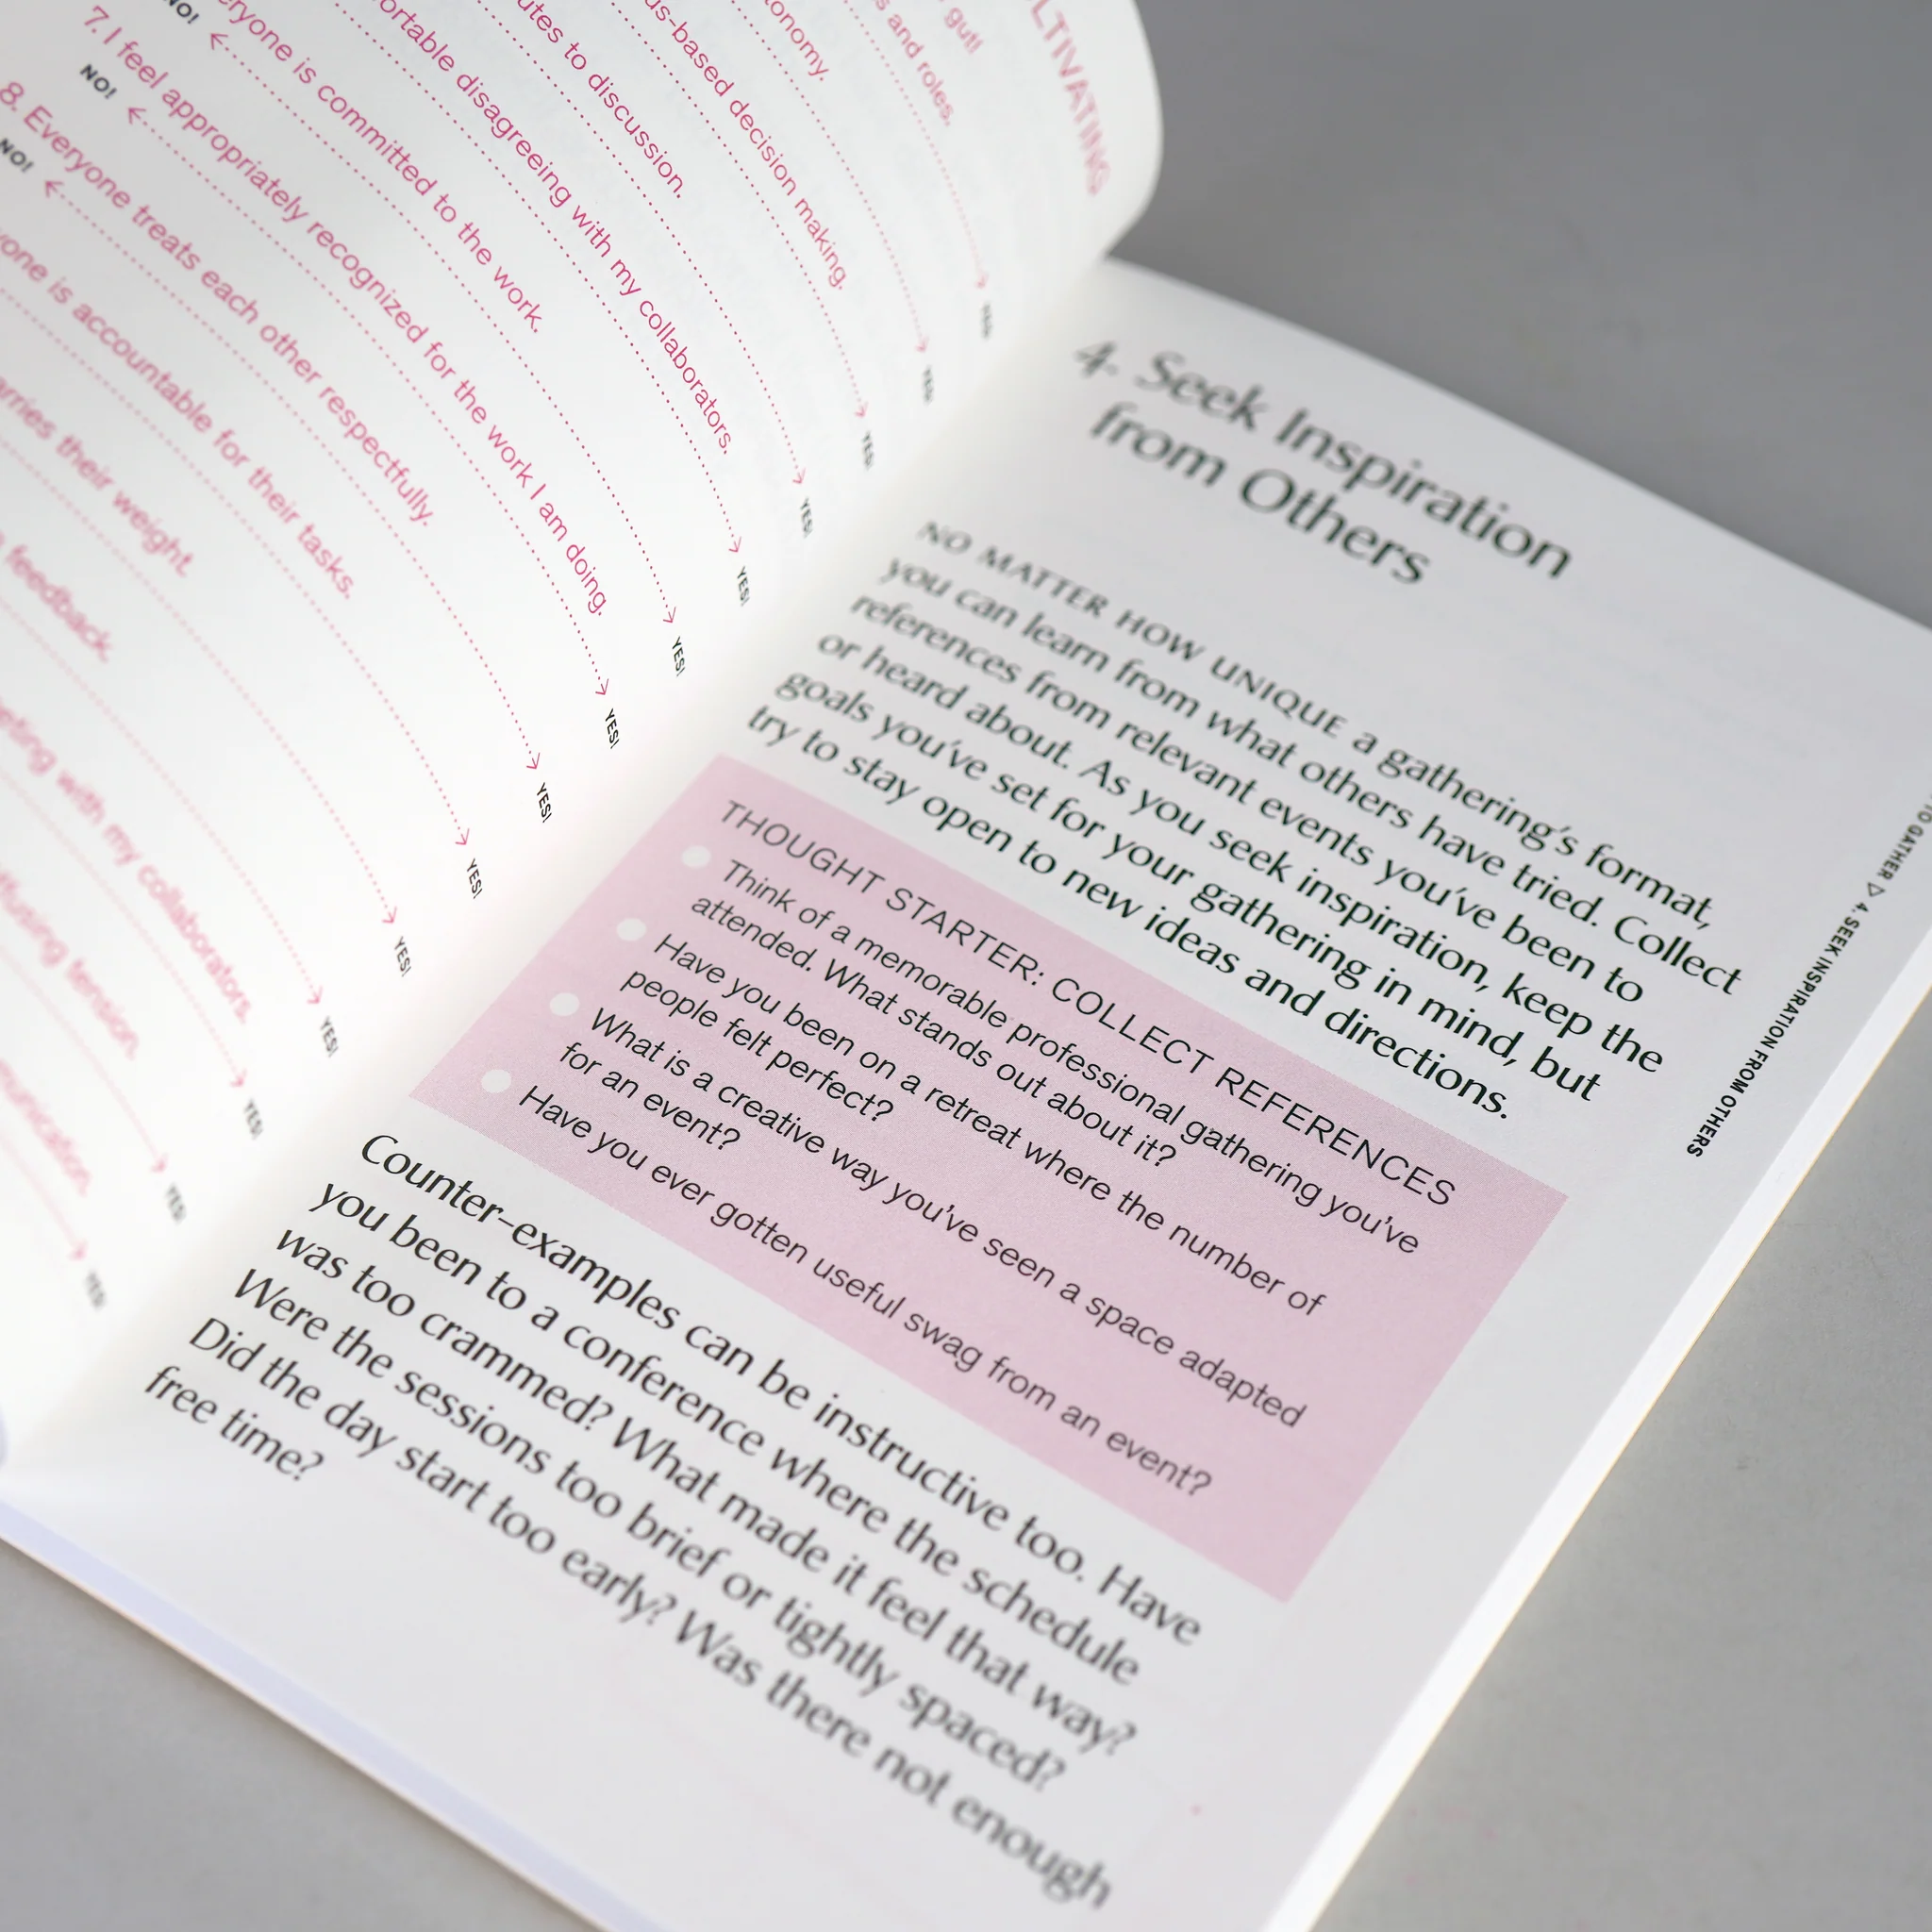 LTIVATING
gut!
s and roles.
YES!
tonomy.
YES!
us-based decision making.
YES!
utes to discussion.
YES!
ortable disagreeing with my collaborators.
YES!
eryone is committed to the work.
NO! YES!
7. I feel appropriately recognized for the work I am doing.
NO! YES!
8. Everyone treats each other respectfully.
NO! YES!
one is accountable for their tasks.
YES!
arries their weight.
YES!
feedback.
YES!
YES!
with my collaborators.
YES!
tension.
YES!
YES!
4. Seek Inspiration
from Others
NO MATTER HOW UNIQUE a gathering's format,
you can learn from what others have tried. Collect
references from relevant events you've been to
or heard about. As you seek inspiration, keep the
goals you've set for your gathering in mind, but
try to stay open to new ideas and directions.
THOUGHT STARTER: COLLECT REFERENCES
Think of a memorable professional gathering you've
attended. What stands out about it?
Have you been on a retreat where the number of
people felt perfect?
What is a creative way you've seen a space adapted
for an event?
Have you ever gotten useful swag from an event?
Counter-examples can be instructive too. Have
you been to a conference where the schedule
was too crammed? What made it feel that way?
Were the sessions too brief or tightly spaced?
Did the day start too early? Was there not enough
free time?
TO GATHER ▷ 4. SEEK INSPIRATION FROM OTHERS